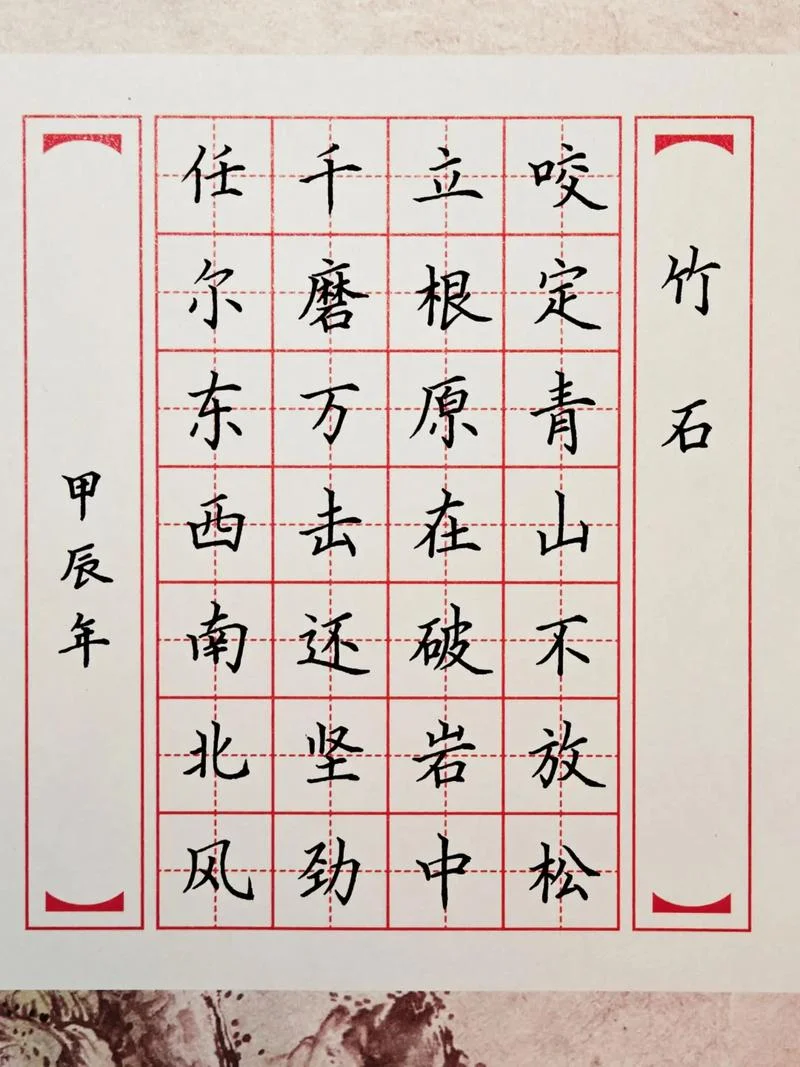 竹石
咬定青山不放松
立根原在破岩中
千磨万击还坚劲
任尔东西南北风
甲辰年